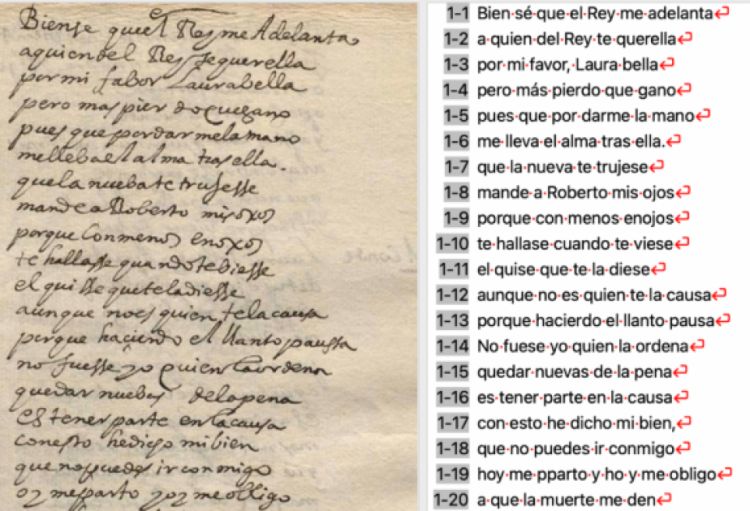 Biense queel Rey me Adelanta
aquiendel Rey sequerella
por mi fabor Laurabella
pero mas pier do quegano
pues que pordarmelamano
mellebaelalma tras ella.
quela nuebate trujesse
mande a Roberto misoxos
porque Conmenos enoxos
te hallasse quandotebiesse
el quisse queteladiesse
aunque noes quien telacausa
porque haciendo el llantopaussa
no fuesse yo quien laordena
quedar nuebas delapena
es tener parte enlacausa
conesto hedicho mibien
que nopuedes ir conmigo
oy meparto yoy meobligo
1-1 Bien sé que el Rey me adelanta
1-2 a quien del Rey te querella
1-3 por mi favor, Laura bella
1-4 pero más pierdo que gano
1-5 pues que por darme la mano
1-6 me lleva el alma tras ella.
1-7 que la nueva te trujese
1-8 mande a Roberto mis ojos
1-9 porque con menos enojos
1-10 te hallase cuando te viese
1-11 el quise que te la diese
1-12 aunque no es quien te la causa
1-13 porque hacierdo el llanto pausa
1-14 No fuese yo quien la ordena
1-15 quedar nuevas de la pena
1-16 es tener parte en la causa
1-17 con esto he dicho mi bien,
1-18 que no puedes ir conmigo
1-19 hoy me pparto y ho y me obligo
1-20 a que la muerte me den